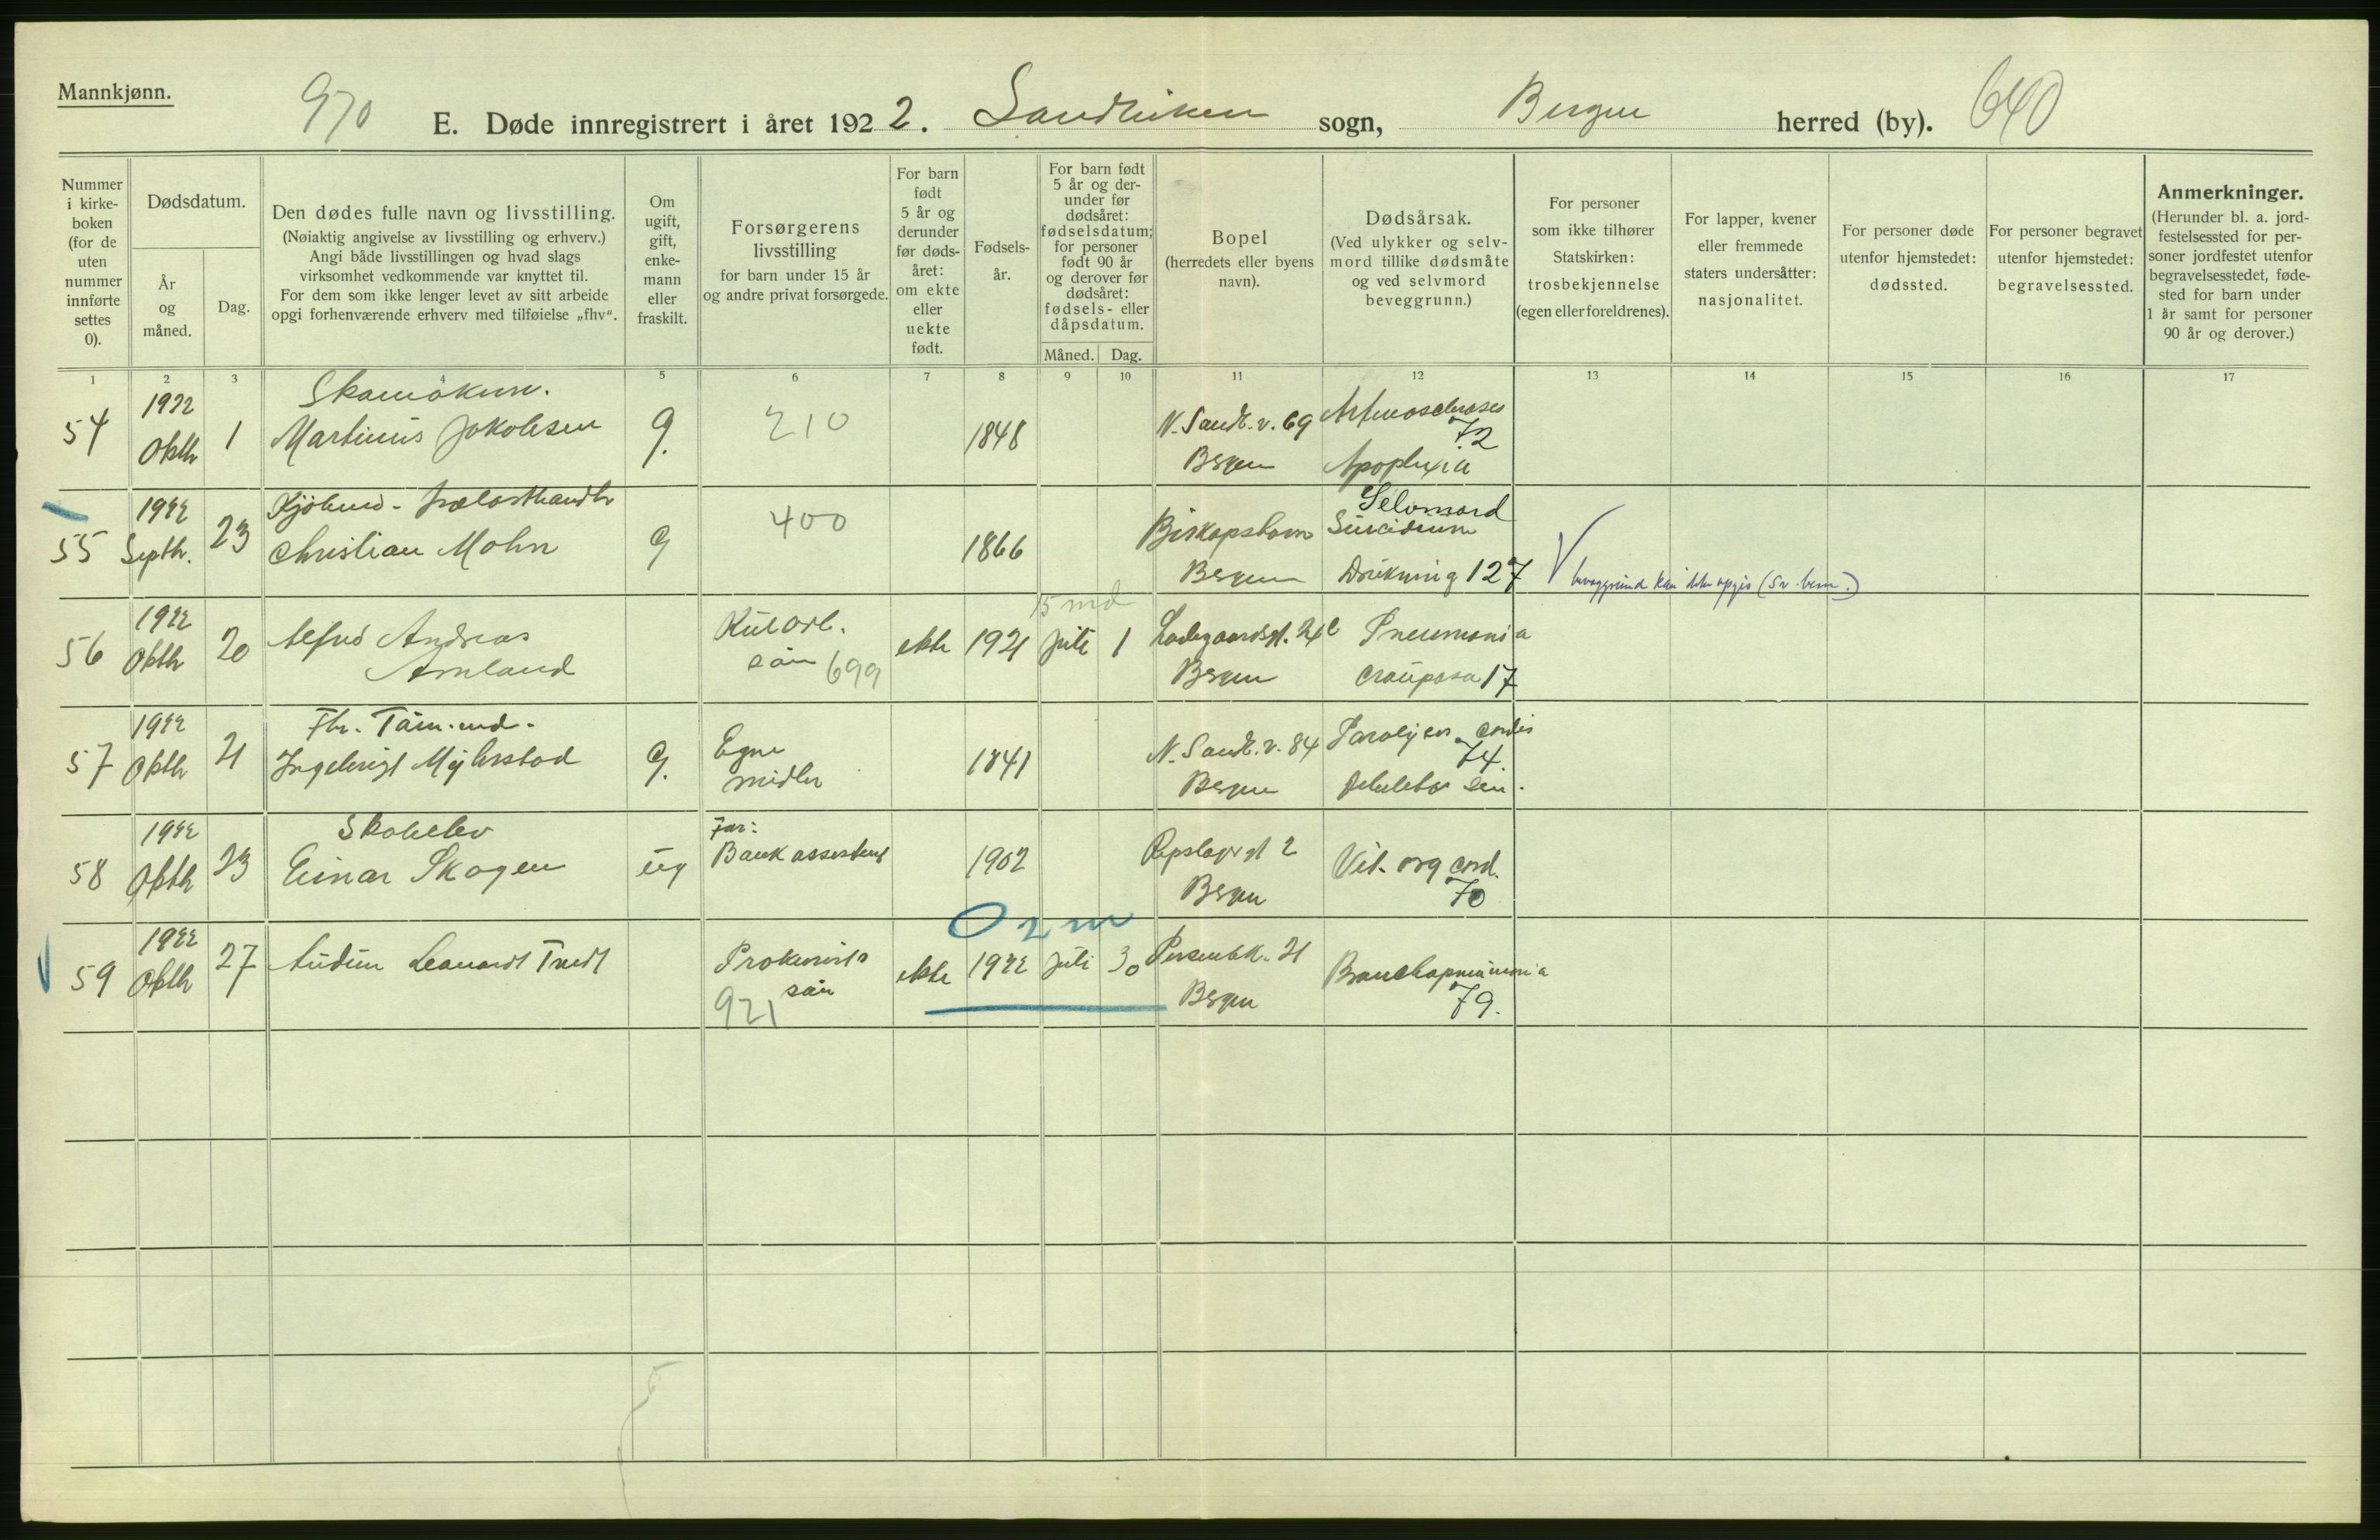 Mannkjønn.
970
E. Døde innregistrert i året 1922. Sandviken sogn, Bergen herred (by). 640
Nummer i kirkeboken (for de uten nummer innførte settes 0).
Dødsdatum.
År og måned.
Dag.
Den dødes fulle navn og livsstilling.
(Nøiaktig angivelse av livsstilling og erhverv.)
Angi både livsstillingen og hvad slags
virksomhet vedkommende var knyttet til.
For dem som ikke lenger levet av sitt arbeide
opgi forhenværende erhverv med tilføielse „fhv“.
Om ugift, gift, enkemann eller fraskilt.
Forsørgerens livsstilling
for barn under 15 år
og andre privat forsørgede.
For barn født 5 år og derunder før dødsåret: om ekte eller uekte født.
Fødselsår.
For barn født 5 år og derunder før dødsåret: fødselsdatum; for personer født 90 år og derover før dødsåret: fødsels- eller dåpsdatum.
Måned. Dag.
Bopel
(herredets eller byens navn).
Dødsårsak.
(Ved ulykker og selvmord tillike dødsmåte og ved selvmord beveggrunn.)
For personer som ikke tilhører Statskirken: trosbekjennelse (egen eller foreldrenes).
For lapper, kvener eller fremmede staters undersåtter: nasjonalitet.
For personer døde utenfor hjemstedet: dødssted.
For personer begravet utenfor hjemstedet: begravelsessted.
Anmerkninger.
(Herunder bl. a. jordfestelsessted for personer jordfestet utenfor begravelsesstedet, fødested for barn under 1 år samt for personer 90 år og derover.)
1 2 3 5 6 7 8 9 10 11 12 13 14 15 16 17
Skomakerm.
54 1922 Oktbr 1 Martinus Jakobsen g. 210 1848 N. Sandv. v. 69 Bergen
72
Apoplexia
55 1922 Septbr. 23
Christian Mohn g 400 1866 Biskopshavn Bergen
Selvmord
Suicidium
Drukning 127
beveggrund kan ikke opgis
56 1922 Oktbr 20 Alfred Andreas
Arnland
sön 699 ekte 1921 juli 1
15 md
Ladegaardsgt. Bergen
Pneumonia
crouposa 17
57 1922 Oktbr 21
Fhv. Töm.md.
g. Egne
midler 1841 N. Sandv. v. 84 Bergen
Paralysis cordis
74.
58 1922 Oktbr 23
Skoleelev
Einar Skogen ug
Far:
Bankassistent 1902
Bergen
Vit. org cord.
70
59 1922 Oktbr 27
Prokurists
sön
921 ekte 1922 juli 30
0 2 m
Bergen
Bronchopneumonia
79.